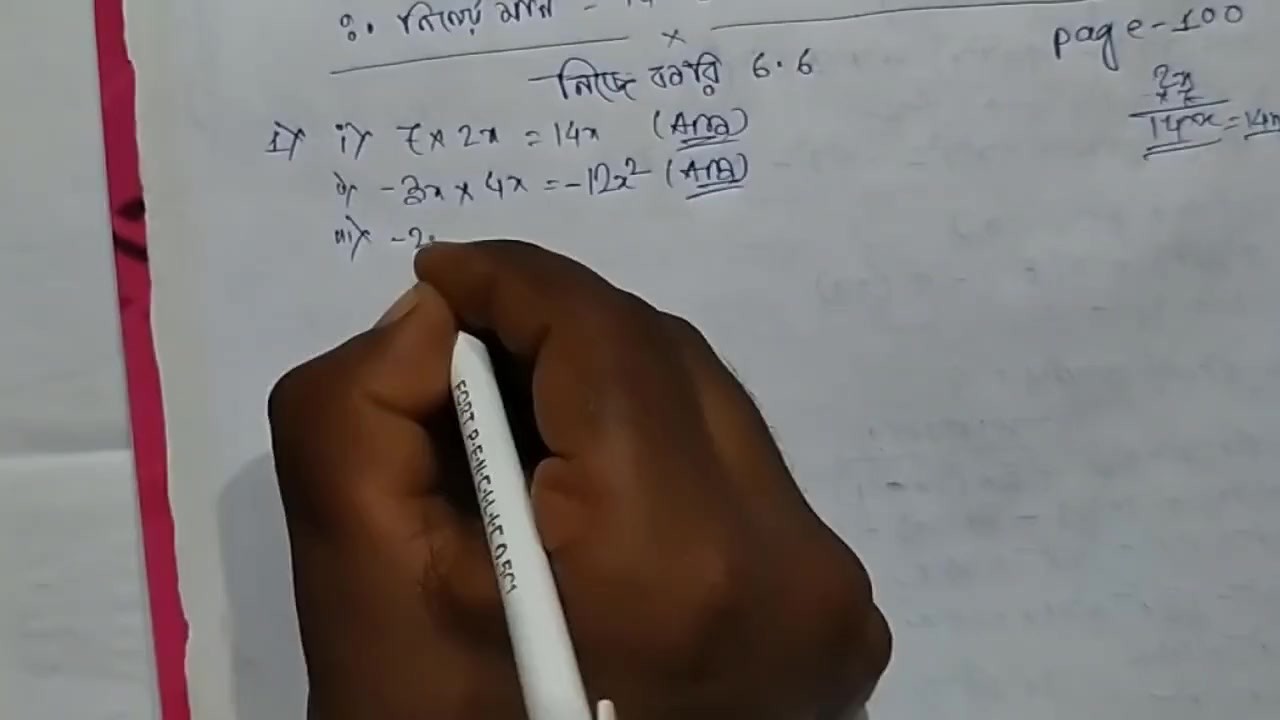 ∴ নির্ণেয় মান =
×
নিজে করি 6.6
page-100
1) i) 7 × 2x = 14x (Ans)
ii) -3x × 4x = -12x² (Ans)
iii) -2
2x
× 7
14x = 14x
FORT PENCIL